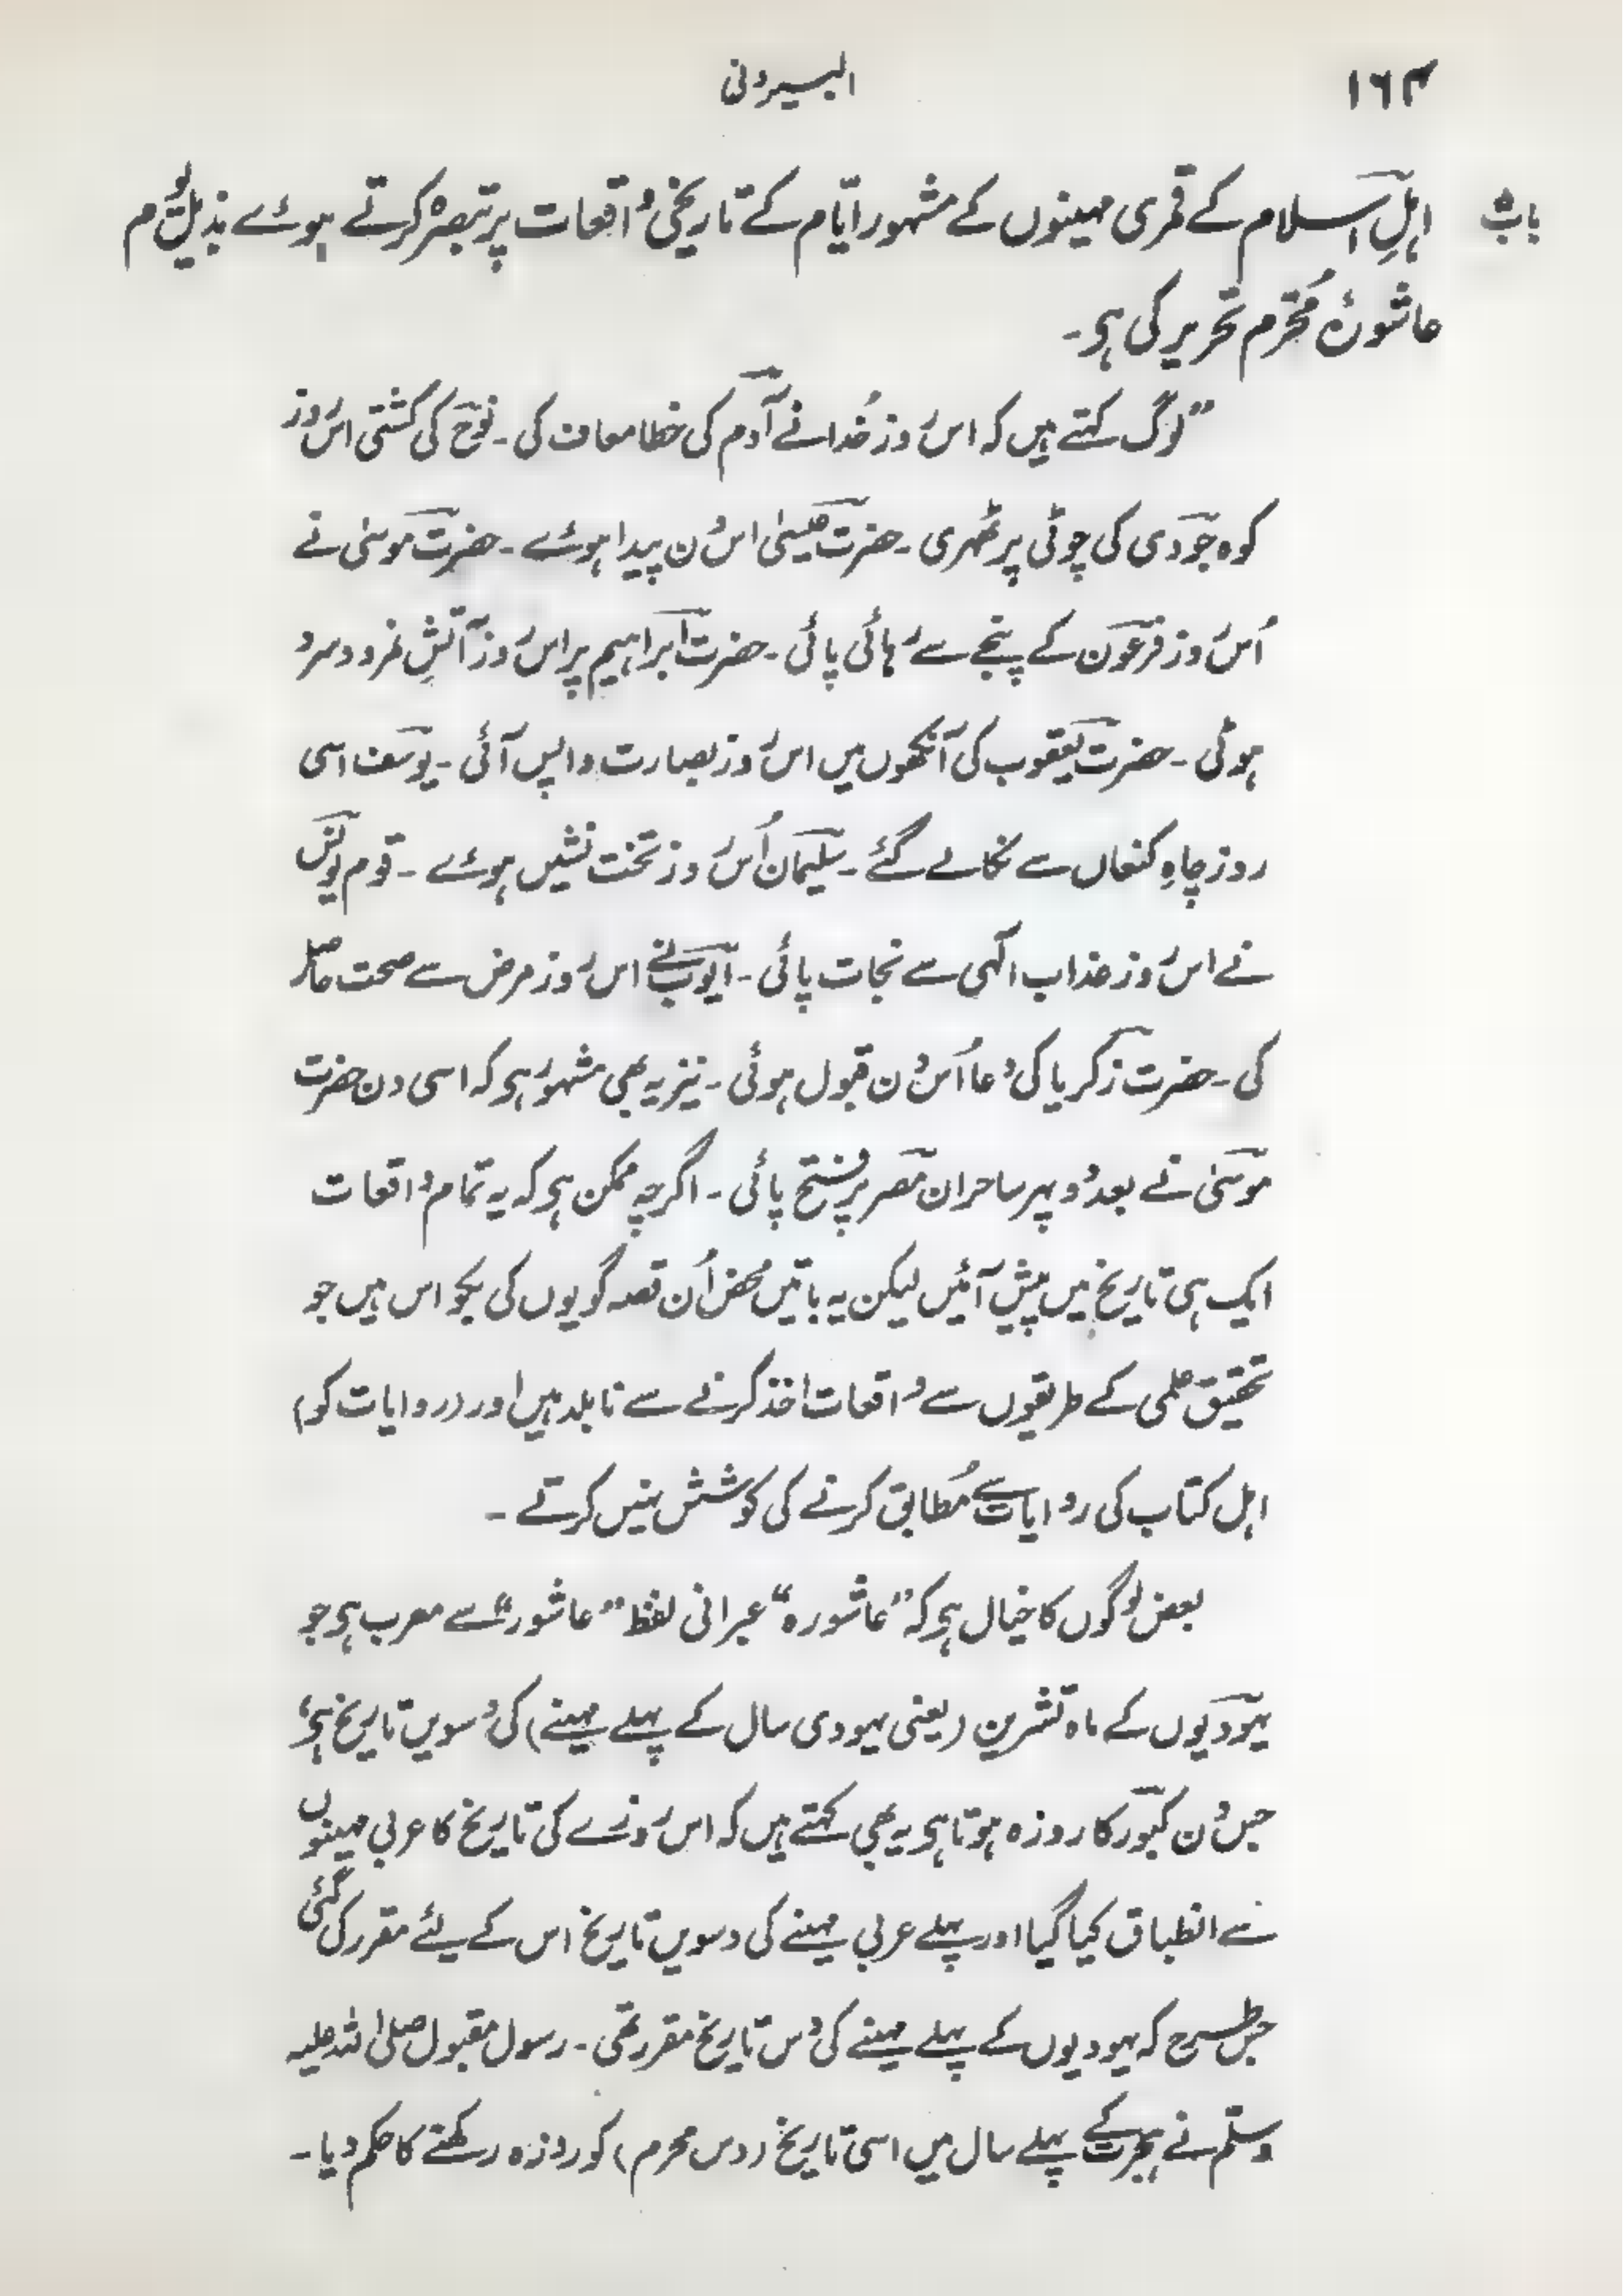 ۱۶۴
البیرونی
باب
اہلِ اسلام کے قمری مہینوں کے مشہور ایّام کے تاریخی واقعات پر تبصرہ کرتے ہوئے بذیل یوم
عاشورۂ مُحرّم تحریر کی ہی۔
”لوگ کہتے ہیں کہ اس روز خُدا نے آدم کی خطا معاف کی۔ نوح کی کشتی اس روز
کوہ جودی کی چوٹی پر ٹھہری۔ حضرت عیسیٰ اس دن پیدا ہوئے۔ حضرت موسیٰ نے
اُس روز فرعون کے پنجے سے رہائی پائی۔ حضرت ابراہیم پر اس روز آتشِ نمرود سرد
ہوئی۔ حضرت یعقوب کی آنکھوں میں اس روز بصارت واپس آئی۔ یوسف اسی
روز چاہِ کنعاں سے نکالے گئے۔ سلیمان اُس روز تخت نشیں ہوئے۔ قوم یونس
نے اس روز عذاب الٰہی سے نجات پائی۔ ایوب نے اس روز مرض سے صحت حاصل
کی۔ حضرت زکریا کی دعا اُس دن قبول ہوئی۔ نیز یہ بھی مشہور ہی کہ اسی دن حضرت
موسیٰ نے بعد دوپہر ساحران مصر پر فتح پائی۔ اگرچہ ممکن ہی کہ یہ تمام واقعات
ایک ہی تاریخ میں پیش آئیں لیکن یہ باتیں محض اُن قصہ گویوں کی بکواس ہیں جو
تحقیق علمی کے طریقوں سے واقعات اخذ کرنے سے نابلد ہیں اور (روایات کو)
اہل کتاب کی روایات سے مُطابق کرنے کی کوشش نہیں کرتے۔
بعض لوگوں کا خیال ہی کہ ”عاشورہ“ عبرانی لفظ ”عاشور“ سے معرب ہی جو
یہودیوں کے ماہ تشرین (یعنی یہودی سال کے پہلے مہینے) کی دسویں تاریخ ہی،
جس دن کبور کا روزہ ہوتا ہی یہ بھی کہتے ہیں کہ اس روزے کی تاریخ کا عربی مہینوں
سے انطباق کیا گیا اور پہلے عربی مہینے کی دسویں تاریخ اس کے لیئے مقرر کی گئی
جس طرح کہ یہودیوں کے پہلے مہینے کی دس تاریخ مقرر تھی۔ رسول مقبول صلی اللہ علیہ
وسلّم نے ہجرت کے پہلے سال میں اسی تاریخ (دس محرم) کو روزہ رکھنے کا حکم دیا۔